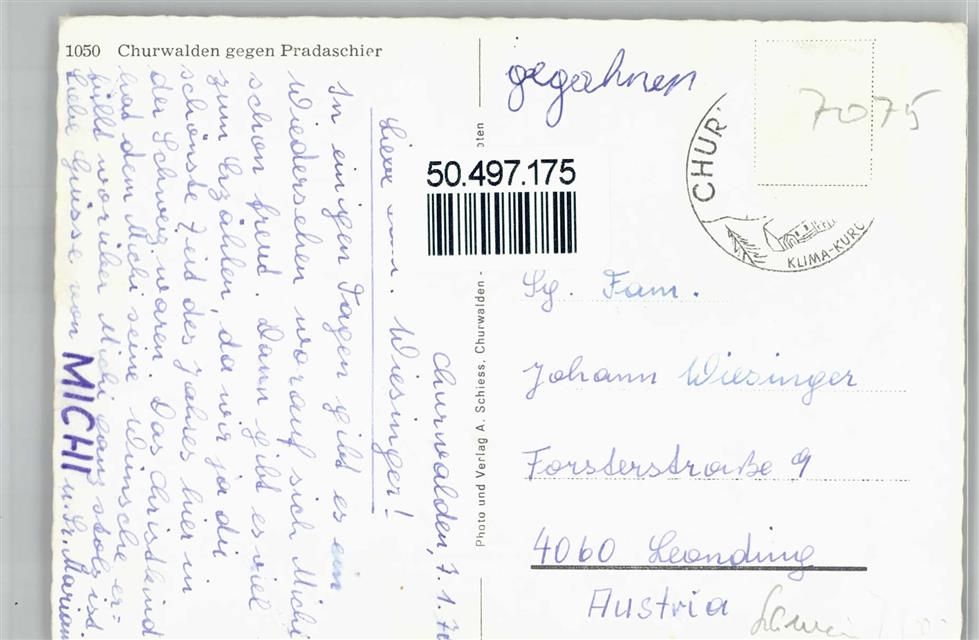 1050 Churwalden gegen Pradaschier
Churwalden, 7.1.7
Liebe Fam. Wiesinger!
In einigen Tagen gibt es ein
Wiedersehen worauf sich Michi
schon freut. Dann gibt es viel
zum Erzählen, da wir ja die
schönste Zeit des Jahres hier in
der Schweiz waren. Das Christkind
hat dem Michi seine Wünsche er-
füllt worüber Michi ganz stolz ist
Liebe Grüsse von MICHI u. Sr. Marian
Photo und Verlag A. Schiess, Churwalden
oten
50.497.175
7075
CHUR
KLIMA-KURO
Fam.
Johann Wiesinger
Forsterstraße 9
4060 Leonding
Austria